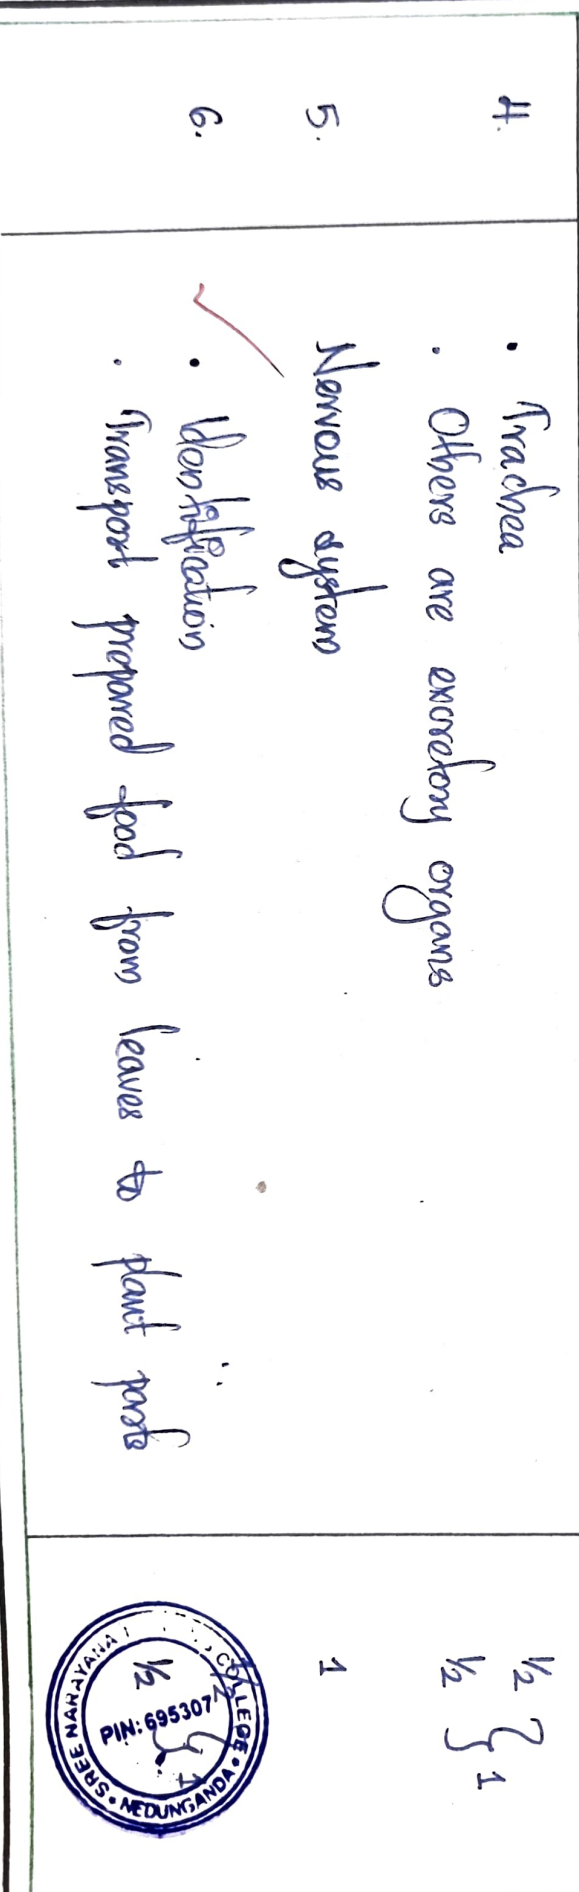 4. • Trachea ½ } 1
• Others are excretory organs ½
5. Nervous system 1
6. • Identification ½ } 1
• Transport prepared food from leaves to plant parts ½
SREE NARAYANA COLLEGE • NEDUNGANDA •
PIN: 695307